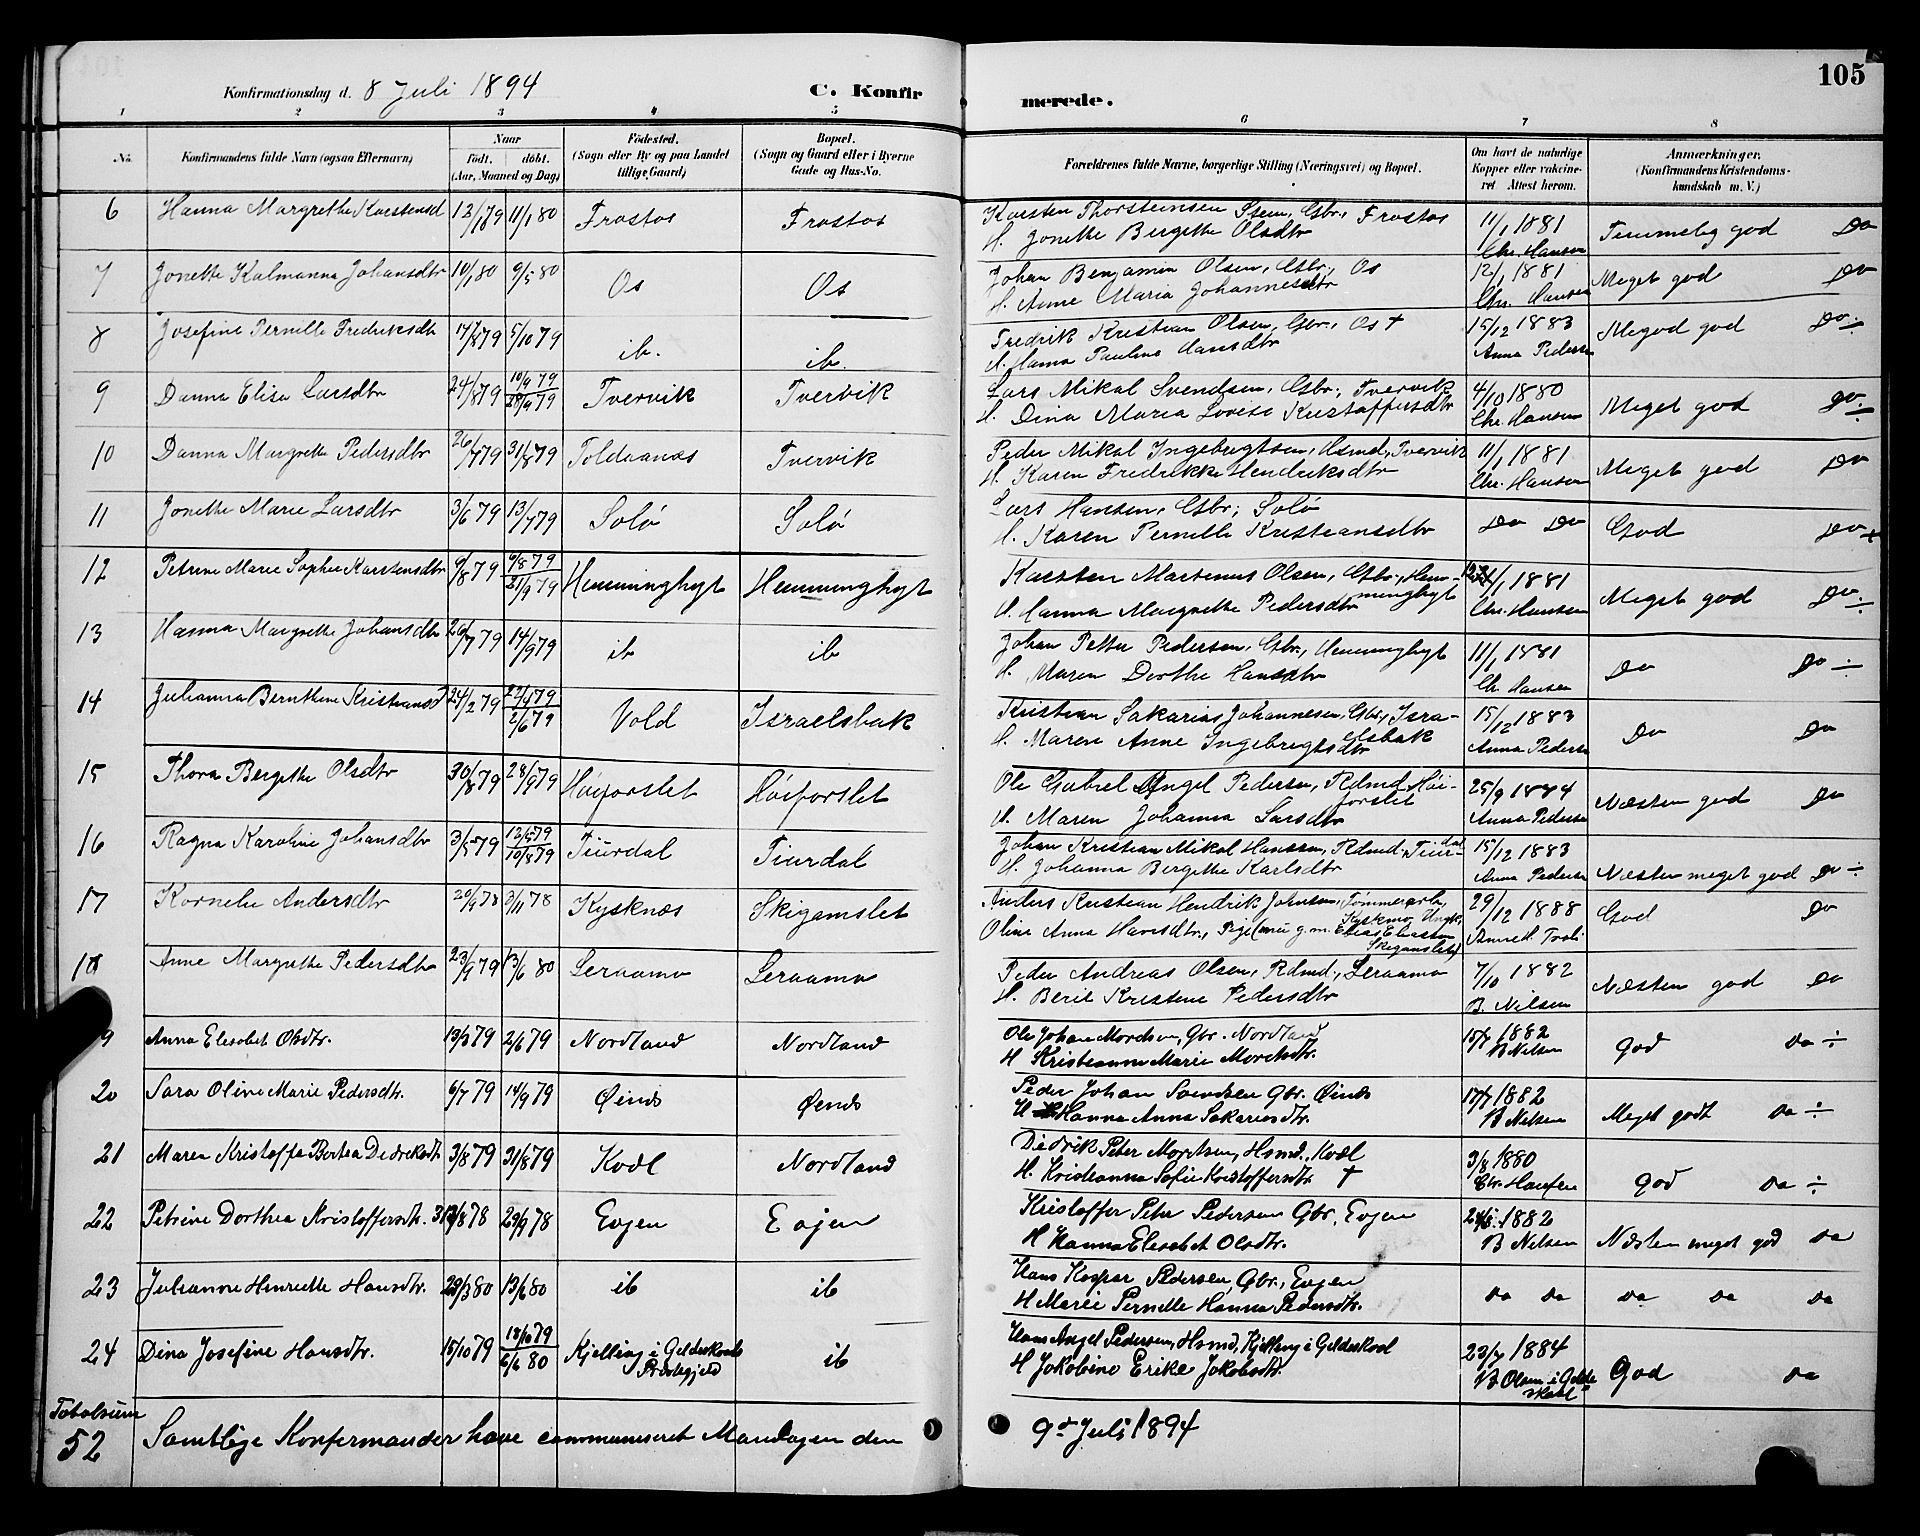 105
Konfirmationsdag d. 8 Juli 1894
C. Konfir merede.
1 2 3 4 5 6 7 8
No. Konfirmandens fulde Navn (ogsaa Efternavn) Naar født. døbt. (Aar, Maaned og Dag) Fødested. (Sogn eller By og paa Landet tillige Gaard) Bopæl. (Sogn og Gaard eller i Byerne Gade og Hus-No. Forældrenes fulde Navne, borgerlige Stilling (Næringsvei) og Bopæl. Om havt de naturlige Kopper eller vakcineret Attest herom. Anmærkninger. (Konfirmandens Kristendomskundskab m. V.)
6 Hanna Margrethe Karstensd 12/1 79 11/1 80 Frostos Frostos Karsten Thorsteinsen Sten, Gbr., Frostos 11/1 1881 Temmelig god Do
H. Jonette Bergitte Olsdtr Chr. Hansen
7 Jonette Kalmanna Johansdtr 10/1 80 9/5 80 Os Os Johan Benjamin Olsen, Gbr., Os 12/1 1881 Meget god Do
H. Anne Maria Johannesdtr Chr. Hansen
8 Josefine Pernille Frederiksdtr 14/8 79 5/10 79 ib. ib. Fredrik Kristian Olsen, Gbr., Os † 15/12 1883 Megod god Do ÷
H. Hanna Pauline Hansdtr Anna Peders
9 Danna Elisa Larsdtr 24/8 79 10/9 79 28/9 79 Tvervik Tvervik Lars Mikal Svendsen, Gbr., Tvervik 4/10 1880 Meget god Do ÷
H. Dina Maria Lovise Kristoffersdtr Chr. Hansen
10 Danna Margrethe Pedersdtr 26/7 79 31/8 79 Toldaanæs Tvervik Peder Mikal Ingebrigtsen, Hsmd, Tvervik 11/1 1881 Meget god Do
H. Karen Fredrikke Hendriksdtr Chr. Hansen
11 Jonette Marie Larsdtr 3/6 79 13/7 79 Solø Solø Lars Hansen, Gbr., Solø Do Do God Do
H. Karen Pernille Kristiansdtr
12 Petrine Marie Sophie Karstensdtr 9/8 79 9/8 79 21/9 79 Hemminghyt Hemminghyt Karsten Martenus Olsen, Gbr., Hemminghyt 1881 Meget god Do ÷
H. Hanna Margrethe Pedersdtr Chr. Hansen
13 Hanna Margrethe Johansdtr 26/7 79 14/9 79 ib ib Johan Petter Pedersen, Gbr., Hemminghyt 11/1 1881 Do Do ÷
H. Maren Dorthe Hansdtr Chr. Hansen
14 Julianna Bernthine Kristiansd 24/2 79 2/6 79 Vold Israelsbak Kristian Sakarias Johannesen, Gbr., Israelsbak 15/12 1883 Do Do
H. Maren Anne Ingebrigtsdtr Anna Peders
15 Thora Bergitte Olsdtr 30/8 79 28/9 79 Høiforslet Høiforslet Ole Gabriel Angel Pedersen, Rdmd Høiforslet 25/9 1884 Næsten god Do
H. Maren Johanna Larsdtr Anna Peders
16 Ragna Karoline Johansdtr 3/5 79 12/5 79 10/8 79 Tiurdal Tiurdal Johan Kristian Mikal Hanssen, Rdmd., Tiurdal 15/12 1883 Næsten meget god Do ÷
H. Johanna Bergitte Karlsdtr Anna Peders
17 Kornelie Andersdtr 20/9 78 3/11 78 Kysknæs Skigamslet Anders Kristian Hendrik Johnsen, Tømmerarb, Kyskmo, Ungk. 29/12 1888 God Do
Oline Anna Hansdtr., Pige (nu g. m. Elias Eliassen Skigamslet)
18 Anne Margrethe Pedersdtr 23/9 79 13/6 80 Leraamo Leraamo Peder Andreas Olsen, Rdmd., Leraamo 7/10 1882 Næsten god Do
H. Berit Kristine Pedersdtr B. Nilsen
9 Anna Elesabet Olsdtr. 13/3 79 2/6 79 Nordland Nordland Ole Johan Mordsen, Gbr. Nordland 15/7 1882 God Do ÷
H. Kristeanna Marie Morthsdtr. B Nilsen
20 Sara Oline Marie Pedersdtr. 6/7 79 14/9 79 Øinds Øends Peder Johan Svendsen Gbr. Øinds 17/7 1882 Meget godt Do ÷
H Hanna Anna Sakariasdtr. B Nilsen
21 Maren Kristoffa Bertea Dedriksdtr 3/8 79 31/8 79 Kodl Nordland Didrik Peter Mortsen, Hsmd., Kodl 3/8 1880 God Do ÷
H. Kristeanna Sofie Kristoffersdtr. † Chr. Hansen
22 Petrine Dorthea Kristoffersdt. 31/8 78 29/9 78 Evjen Evjen Kristoffer Peter Pedersen Gbr., Evjen 1882 Næsten meget god Do
H Hanna Elesabet Olsdtr. B Nilsen
23 Julianne Henriette Hansdtr. 29/3 80 13/6 80 ib ib Hans Kaspar Pedersen Gbr., Evjen Do Do Do Do Do
H Marie Pernille Hanna Pedersdtr.
24 Dina Josefine Hansdtr. 15/10 79 18/10 79 6/6 80 Kjelling i Gildeskaals Prestegjeld ib Hans Angel Pedersen, Hsmd, Kjelling i Gildeskaal 23/7 1884 God Do
H Jakobine Erike Jakobsdtr. B Olsen i Gildeskaal
Totalsum 52 Samtlige Konfirmander have communiseret Mandagen den 9de Juli 1894